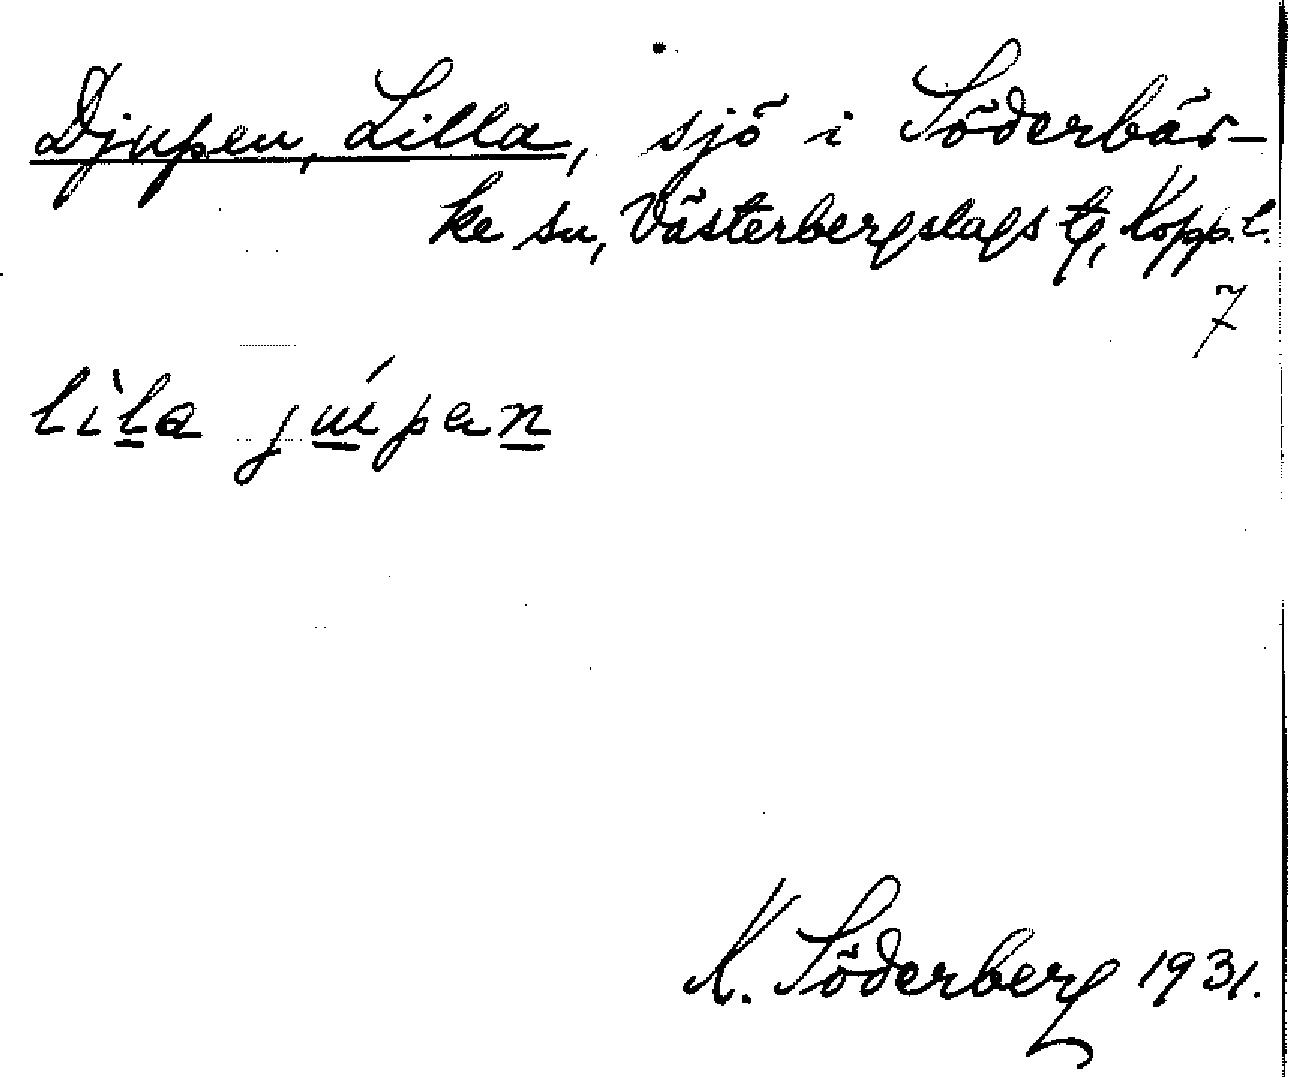 Djupen, Lilla, sjö i Söderbär-
ke sn, Västerbergslags tg, Kopp. l.
7
lìla júpan
K. Söderberg 1931.